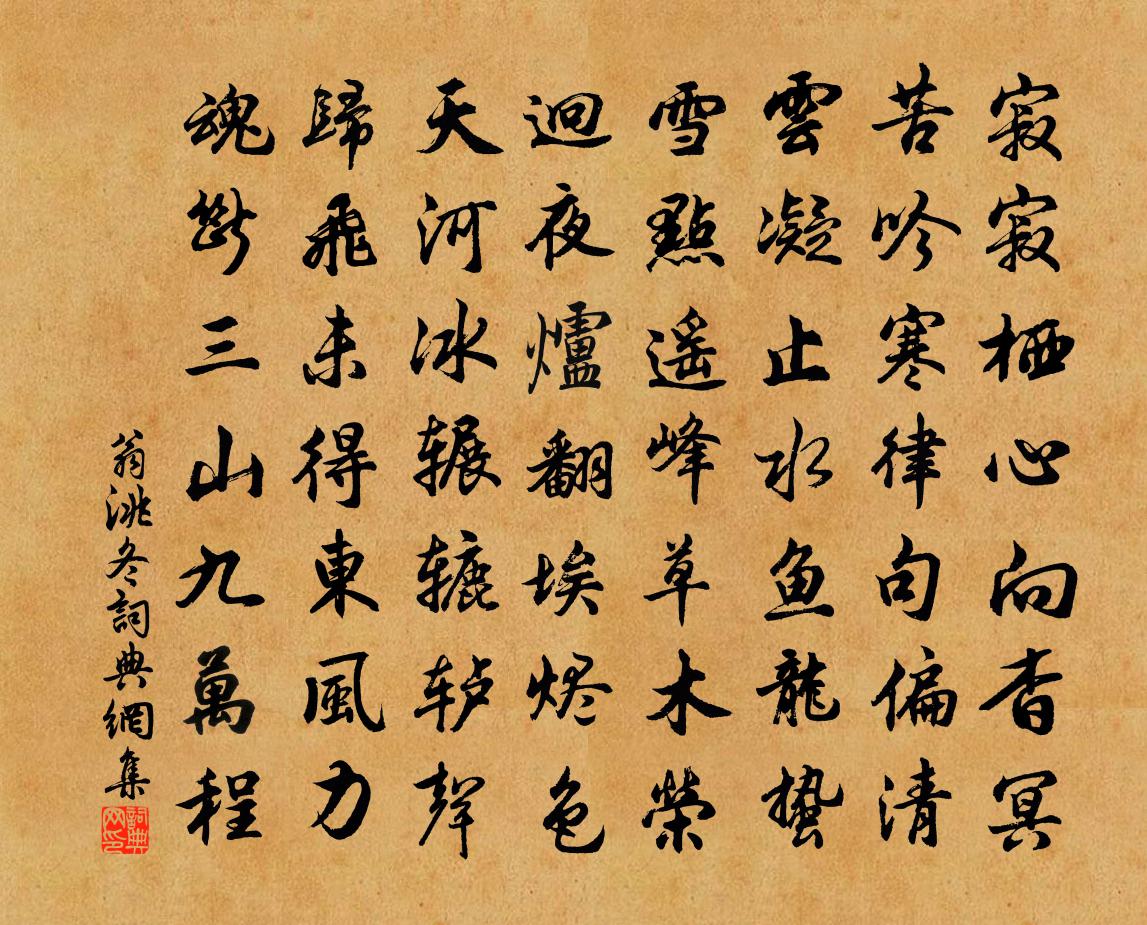 寂寂栖心向杳冥
苦吟寒律句偏清
雲凝止水鱼龍蟄
雪點遥峰草木榮
迥夜爐翻埃烬色
天河冰辗辘轳聲
歸飛未得東風力
魂斷三山九萬程
翁洮冬詞典網集
詞典网印